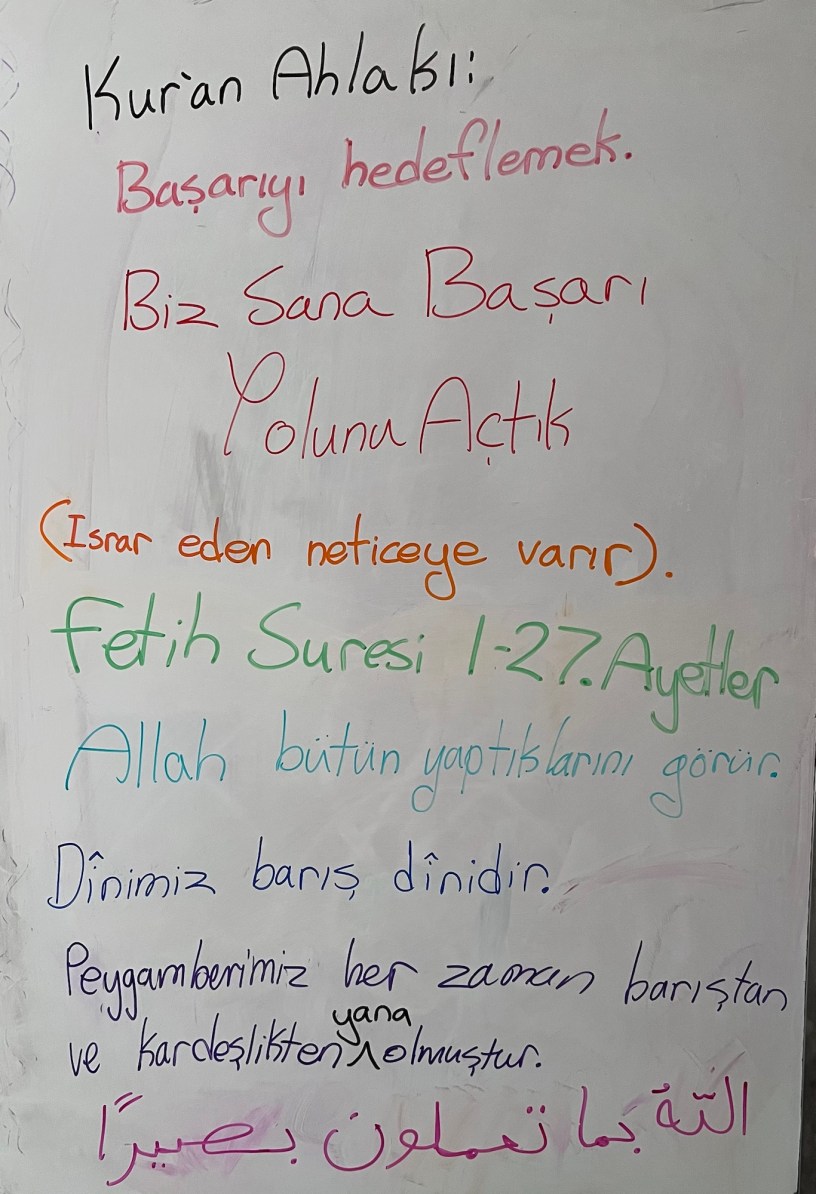 Kur'an Ahlakı:
Başarıyı hedeflemek.
Biz Sana Başarı
Yolunu Açtık
(Israr eden neticeye varır).
Fetih Suresi 1-27. Ayetler
Allah bütün yaptıklarını görür.
Dînimiz barış dînidir.
Peygamberimiz her zaman barıştan
ve kardeşlikten yana olmuştur.
اللّهُ بما تعملون بصيرًا